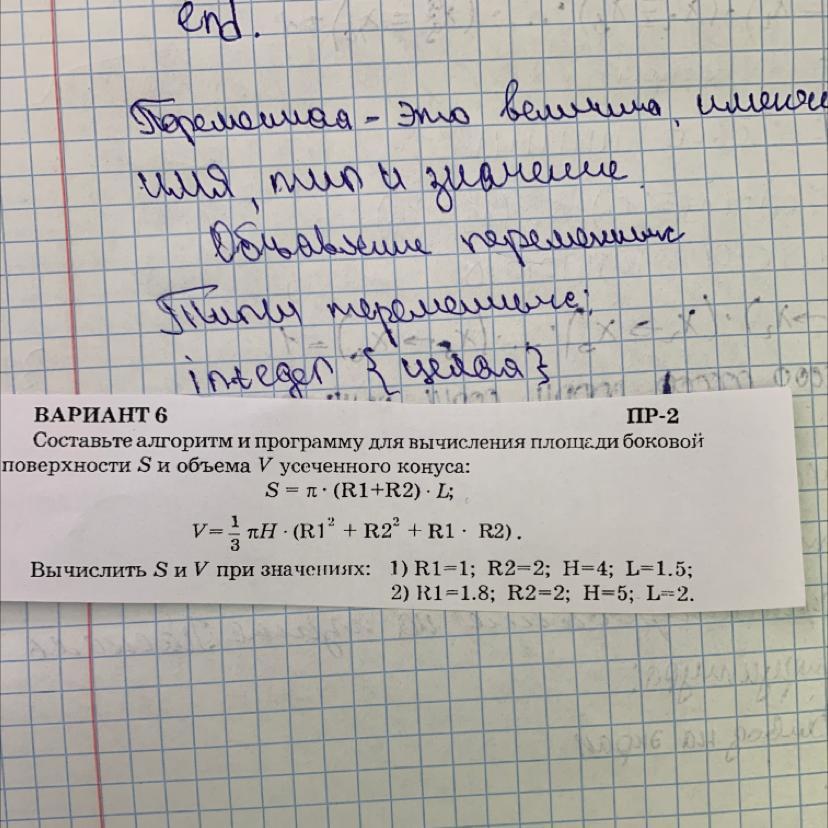 end.
Переменная - это величина, имеющ
имя, тип и значение
Объявление переменных
Типы переменных:
integer {целая}
ВАРИАНТ 6 ПР-2
Составьте алгоритм и программу для вычисления площади боковой
поверхности S и объема V усеченного конуса:
S = π · (R1+R2) · L;
V = 1/3 πH · (R1² + R2² + R1 · R2).
Вычислить S и V при значениях: 1) R1=1; R2=2; H=4; L=1.5;
2) R1=1.8; R2=2; H=5; L=2.